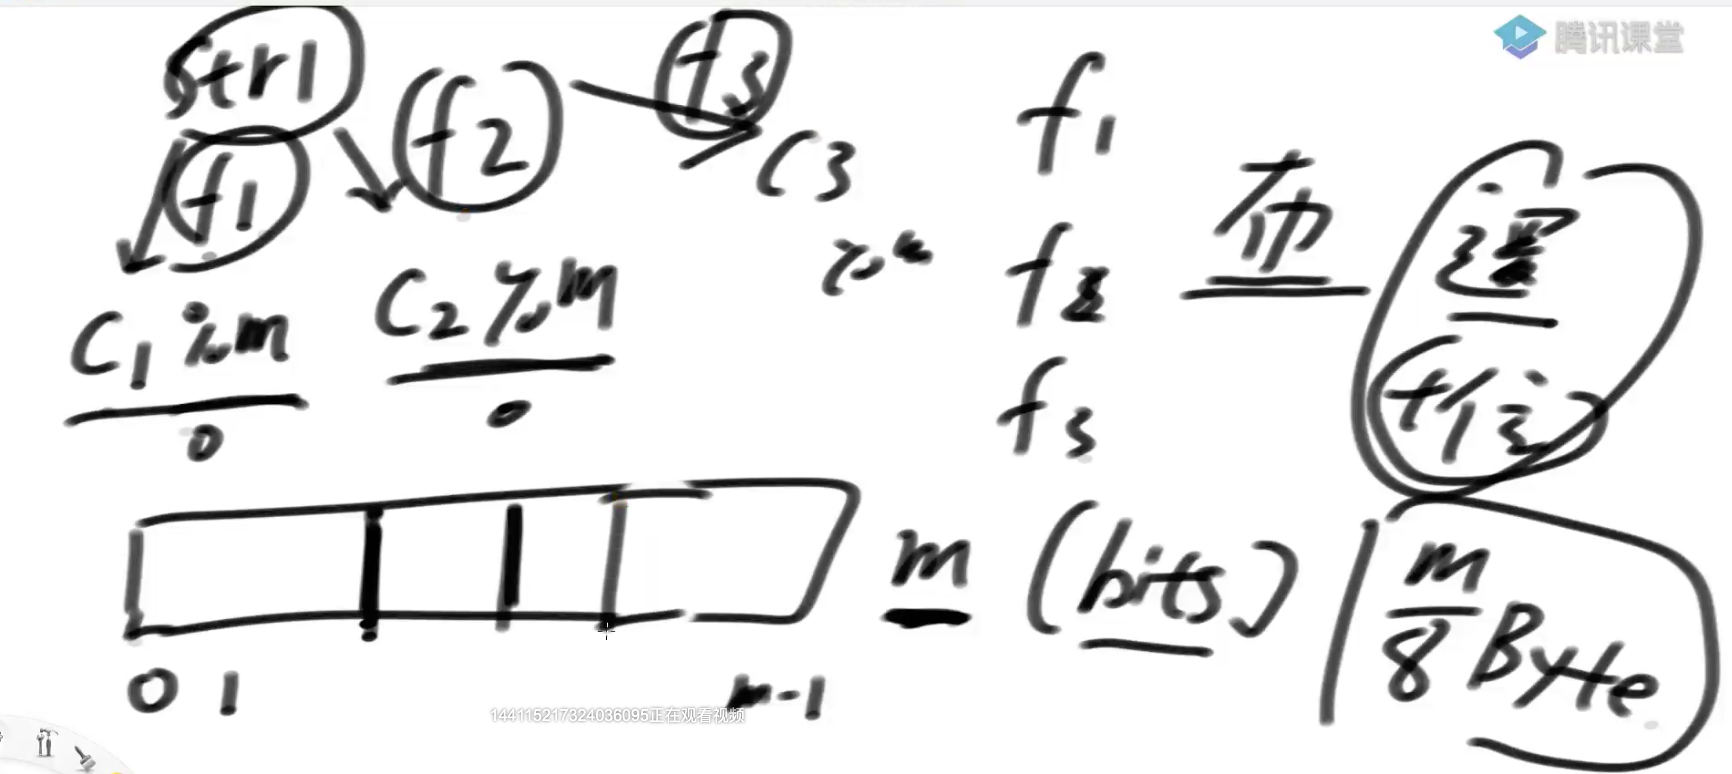 腾讯课堂
str1
f1
f2
f3
C3
C1 %m
0
C2 %m
0
%m
f1
f2
f3
布
隆
m (bits)
m/8 Byte
0 1
m-1
144115217324036095正在观看视频